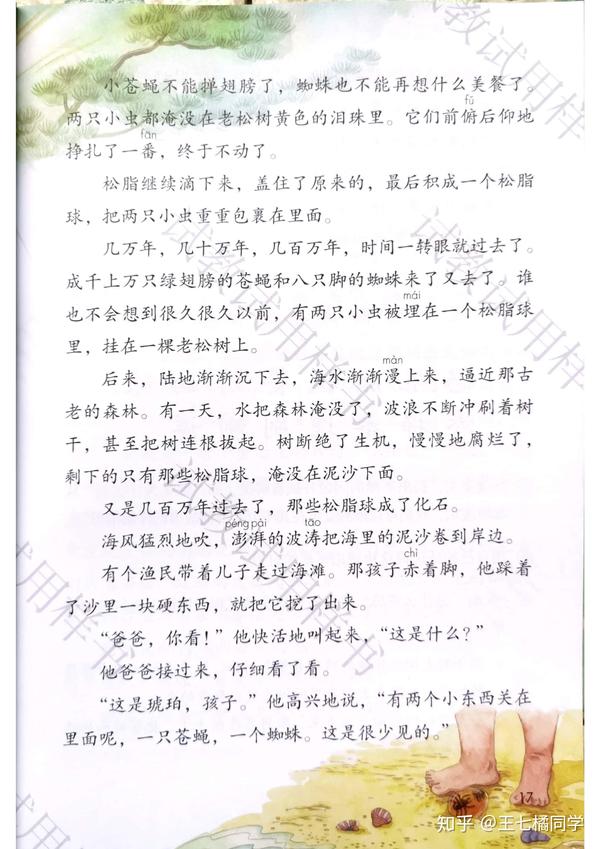 小苍蝇不能掸翅膀了，蜘蛛也不能再想什么美餐了。
fǔ
两只小虫都淹没在老松树黄色的泪珠里。它们前俯后仰地
fān
挣扎了一番，终于不动了。
松脂继续滴下来，盖住了原来的，最后积成一个松脂
球，把两只小虫重重包裹在里面。
几万年，几十万年，几百万年，时间一转眼就过去了。
成千上万只绿翅膀的苍蝇和八只脚的蜘蛛来了又去了。谁
mái
也不会想到很久很久以前，有两只小虫被埋在一个松脂球
里，挂在一棵老松树上。
màn
后来，陆地渐渐沉下去，海水渐渐漫上来，逼近那古
老的森林。有一天，水把森林淹没了，波浪不断冲刷着树
干，甚至把树连根拔起。树断绝了生机，慢慢地腐烂了，
剩下的只有那些松脂球，淹没在泥沙下面。
又是几百万年过去了，那些松脂球成了化石。
péng pài tāo
海风猛烈地吹，澎湃的波涛把海里的泥沙卷到岸边。
chì
有个渔民带着儿子走过海滩。那孩子赤着脚，他踩着
了沙里一块硬东西，就把它挖了出来。
“爸爸，你看！”他快活地叫起来，“这是什么？”
他爸爸接过来，仔细看了看。
“这是琥珀，孩子。”他高兴地说，“有两个小东西关在
里面呢，一只苍蝇，一个蜘蛛。这是很少见的。”
17
知乎 @王七橘同学
试教试用样书
试教试用样书
试教试用样书